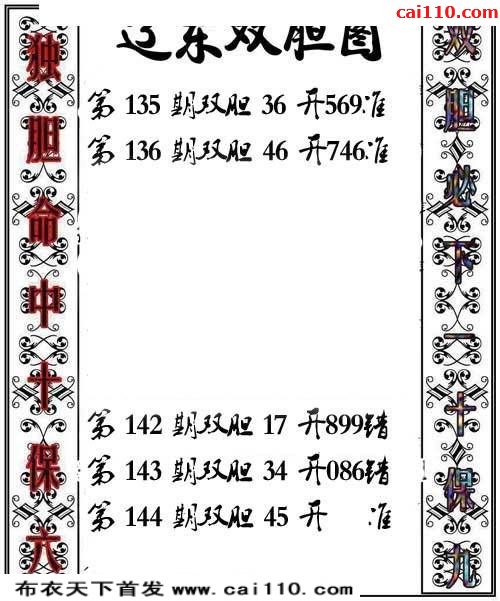 cai110.com
辽东双胆图
第 135 期双胆 36 开569准
第 136 期双胆 46 开746准
第 142 期双胆 17 开899错
第 143 期双胆 34 开086错
第 144 期双胆 45 开 准
独胆命中十保六
双胆必下一十保九
布衣天下首发 www.cai110.com